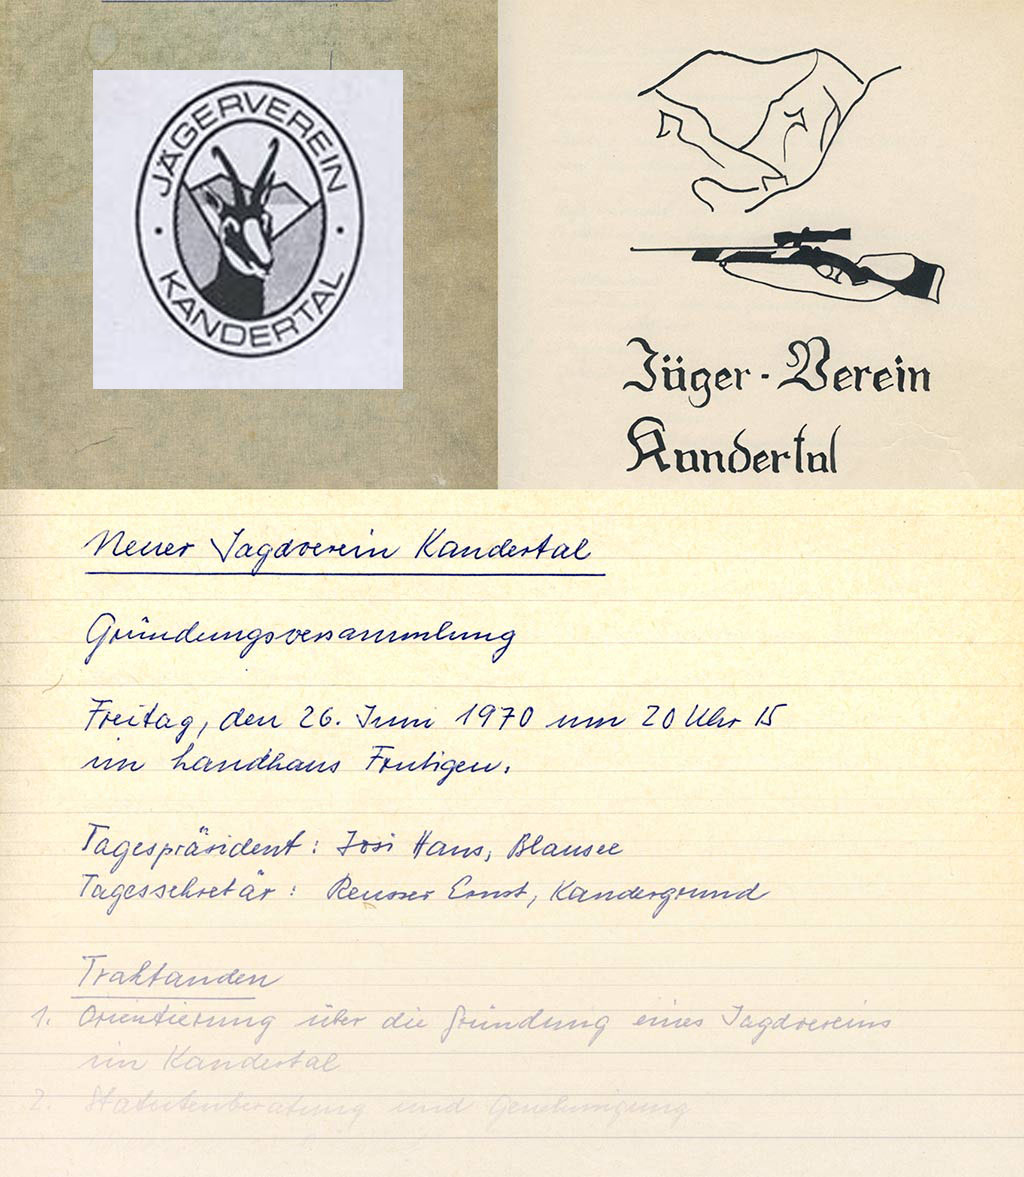 JÄGERVEREIN
KANDERTAL
Jäger-Verein
Kandertal
Neuer Jagdverein Kandertal
Gründungsversammlung
Freitag, den 26. Juni 1970 um 20 Uhr 15
im Landhaus Frutigen.
Tagespräsident: Josi Hans, Blausee
Tagessekretär: Reusser Ernst, Kandergrund
Traktanden
1. Orientierung über die Gründung eines Jagdvereins
im Kandertal
2. Statutenberatung und Genehmigung